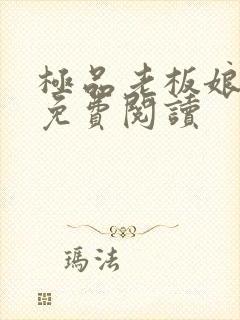 極品老板娘
免費閱讀
瑪法